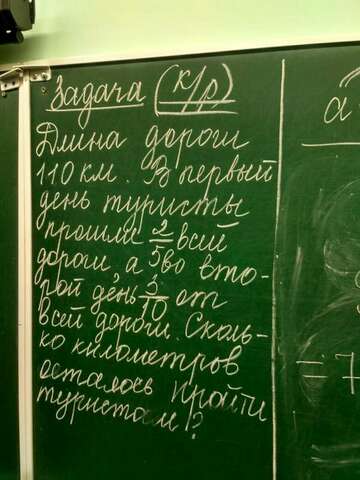 Задача (к/р)
Длина дороги
110 км. В первый
день туристы
прошли 2/5 всей
дороги, а во вто-
рой день 3/10 от
всей дороги. Сколь-
ко километров
осталось пройти
туристам?
a
= 7